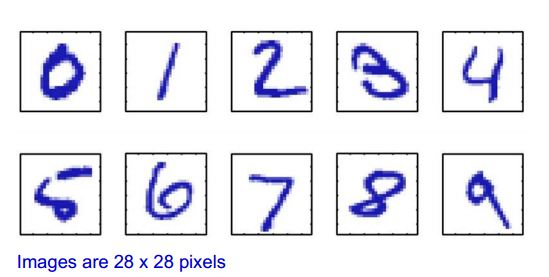 0 1 2 3 4
5 6 7 8 9
Images are 28 x 28 pixels